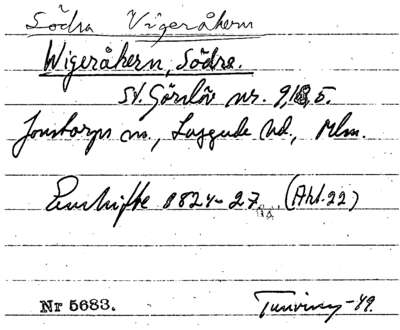 Södra Vigeråkern
Wigeråkern, Södra.
St. Görslöv nr. 9,18,5.
Jonstorps sn., Luggude hd., Mlm.
Enskifte 1824-27. (Akt. 22)
Nr 5683. -49.